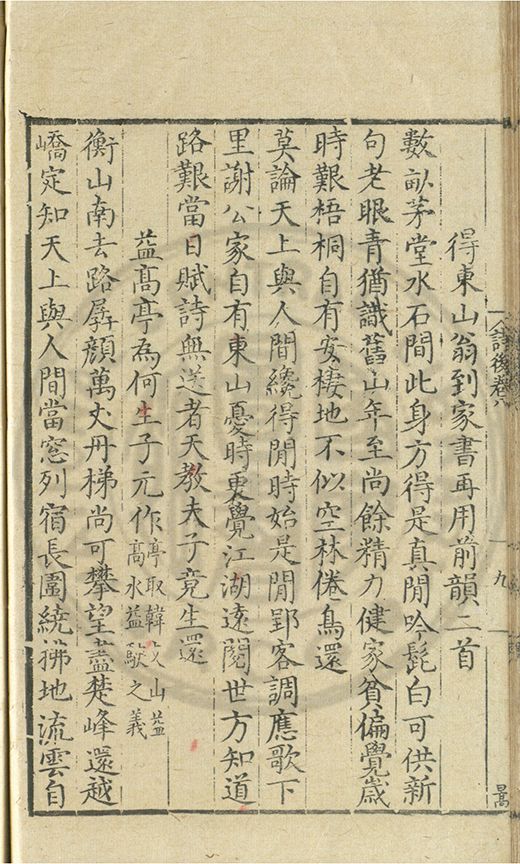 得東山翁到家書再用前韻二首
數畝茅堂水石間此身方得是真閒吟髭白可供新
句老眼青猶識舊山年至尚餘精力健家貧偏覺歲
時艱梧桐自有安棲地不似空林倦鳥還
莫論天上與人間纔得閒時始是閒郢客調應歌下
里謝公家自有東山憂時更覺江湖遠閱世方知道
路艱當日賦詩無送者天教夫子竟生還
益高亭為何生子元作亭取韓文山益
高水益駛之義
衡山南去路孱顏萬丈丹梯尚可攀望盡楚峰還越
嶠定知天上與人間當窓列宿長圍繞拂地流雲自
詩後卷八
九